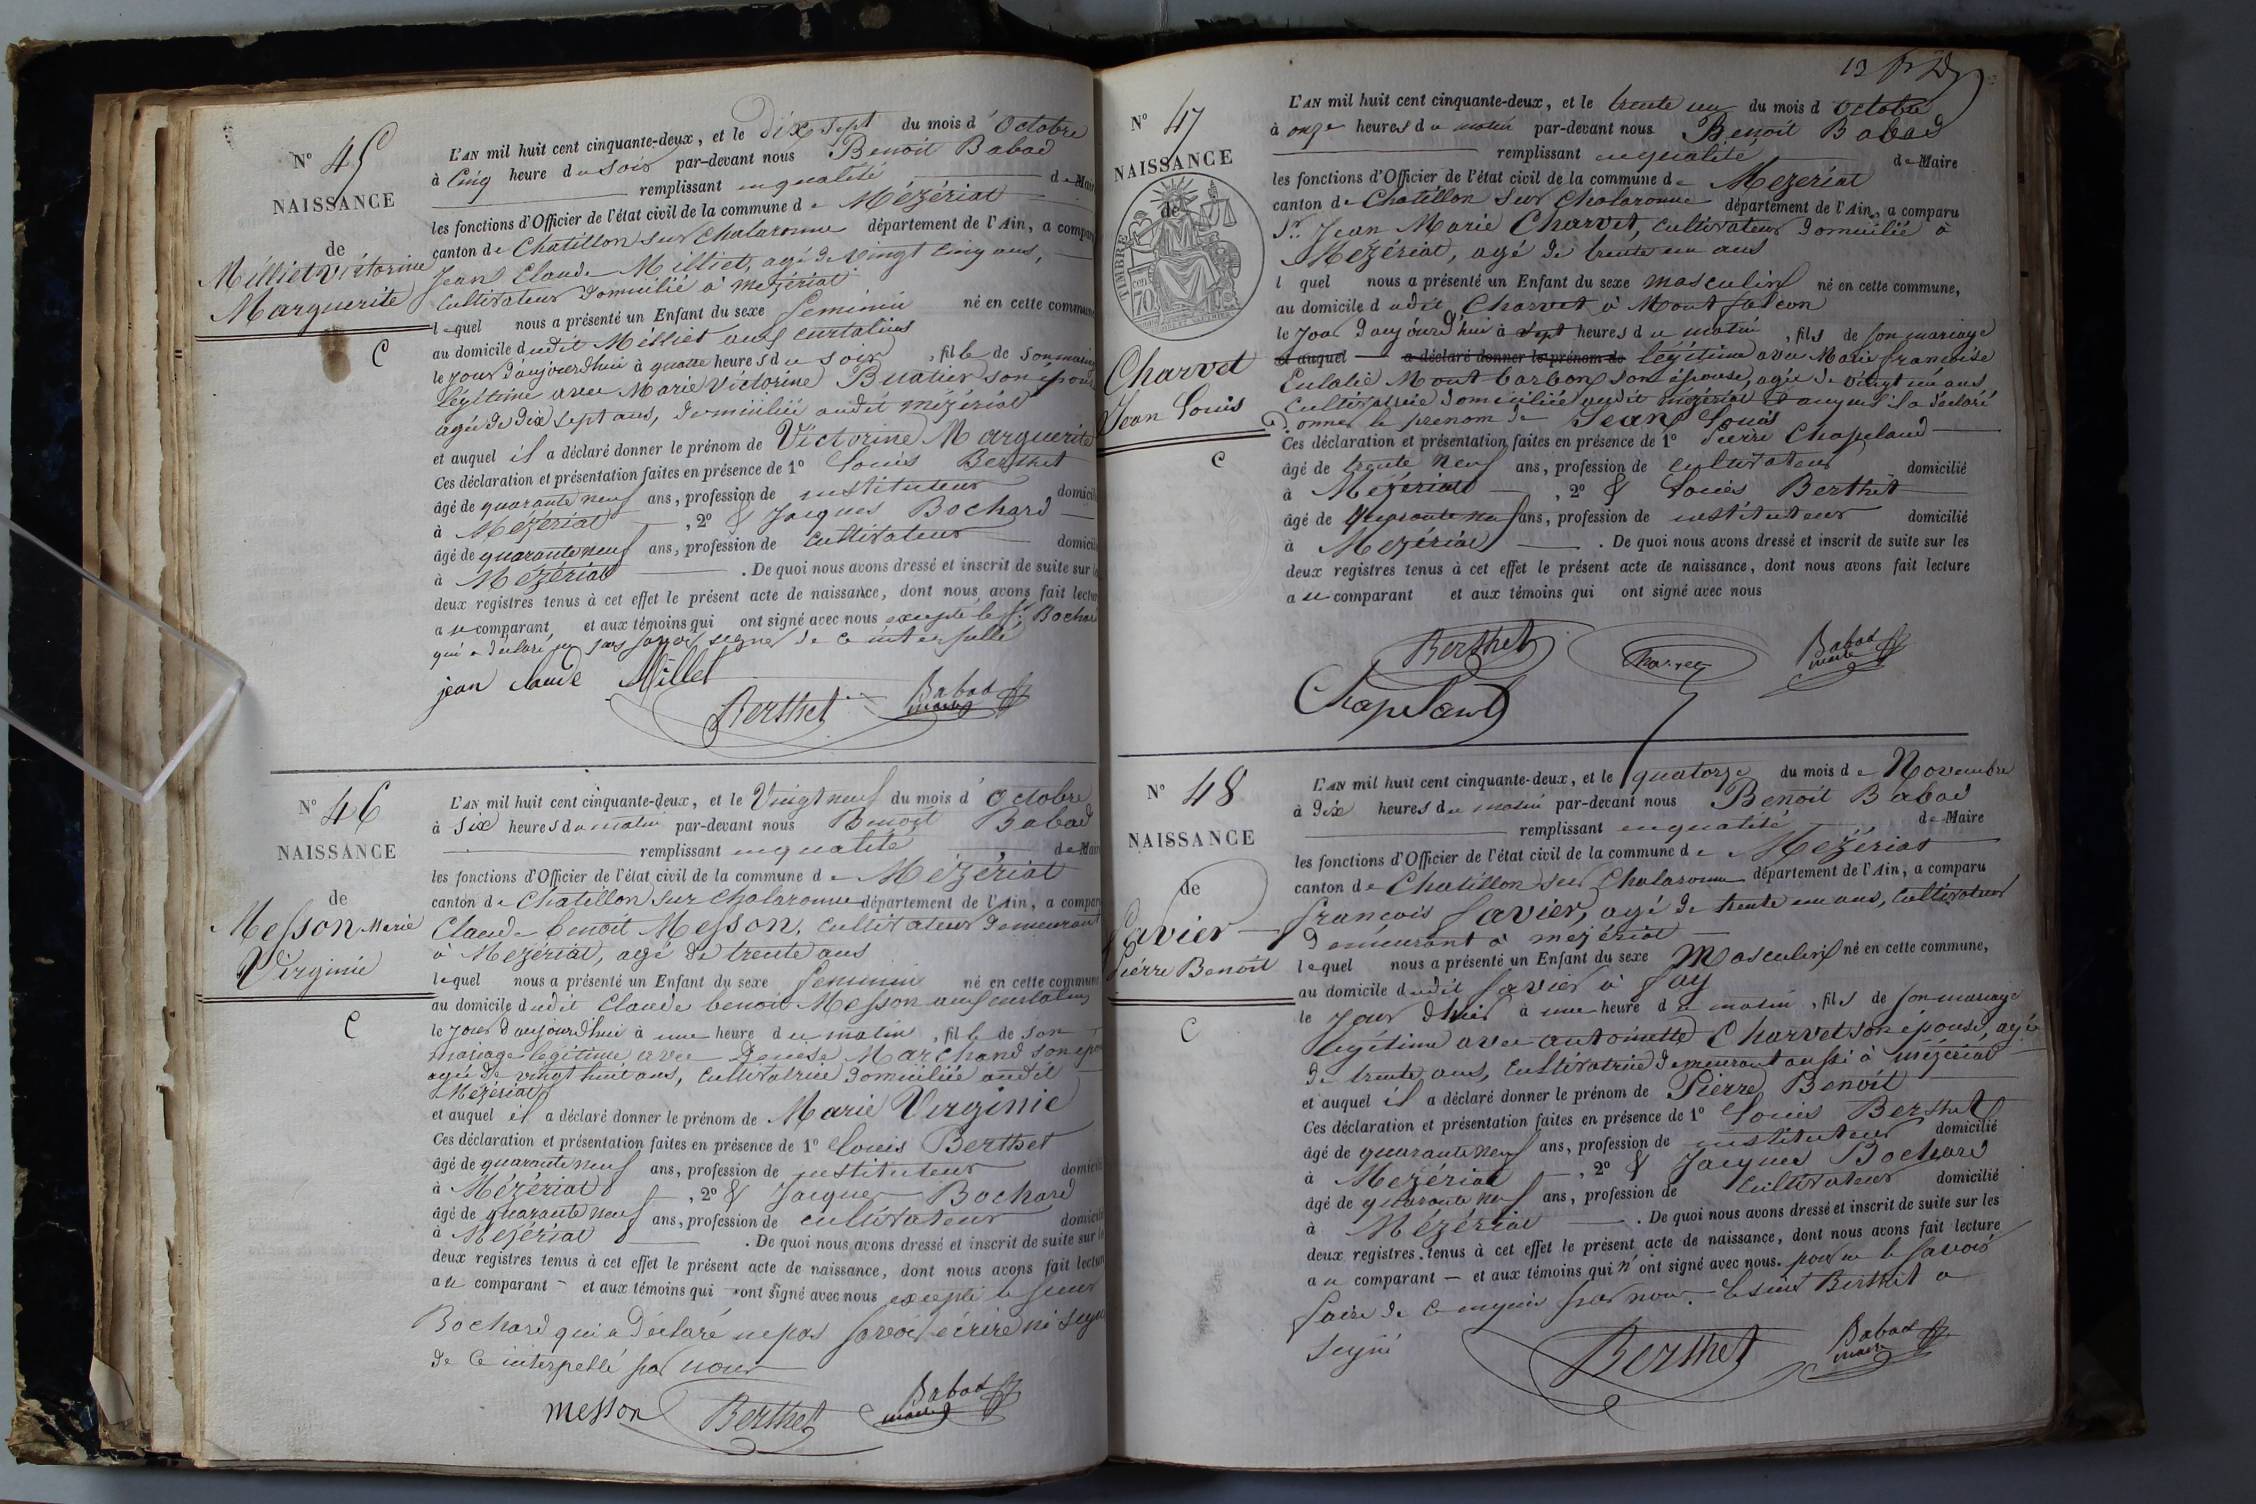 N° 45
NAISSANCE
de
Milliet Victorine
Marguerite
C
L'AN mil huit cent cinquante-deux, et le dix sept du mois d'Octobre
à Cinq heure du soir par-devant nous Benoit Babad
remplissant en qualité de Maire
les fonctions d'Officier de l'état civil de la commune de Mézériat
canton de Chatillon sur Chalaronne département de l'Ain, a comparu
Jean Claude Milliet, agé de vingt cinq ans,
cultivateur domicilié à mézériat
lequel nous a présenté un Enfant du sexe feminin né en cette commune
au domicile dudit Milliet aux curtalins
le jour d'aujourd'hui à quatre heures du soir, fille de son mariage
légitime avec Marie Victorine Buatier son épouse
agée de dix sept ans, domiciliée audit mézériat
et auquel il a déclaré donner le prénom de Victorine Marguerite
Ces déclaration et présentation faites en présence de 1° Louis Berthet
âgé de quarante neuf ans, profession de instituteur domicilié
à Mézériat, 2° & Jacques Bochard
âgé de quarante neuf ans, profession de cultivateur domicilié
à Mézériat. De quoi nous avons dressé et inscrit de suite sur les
deux registres tenus à cet effet le présent acte de naissance, dont nous avons fait lecture
au comparant et aux témoins qui ont signé avec nous excepté le Sr. Bochard
qui a déclaré ne pas savoir signer de ce interpellé
jean claude Millet
Berthet
Babad
maire
N° 46
NAISSANCE
de
Messon Marie
Virginie
C
L'AN mil huit cent cinquante-deux, et le Vingt neuf du mois d'Octobre
à six heures du matin par-devant nous Benoit Babad
remplissant en qualité de Maire
les fonctions d'Officier de l'état civil de la commune de Mézériat
canton de Chatillon sur Chalaronne département de l'Ain, a comparu
Claude benoit Messon, cultivateur demeurant
à Mézériat, agé de trente ans
lequel nous a présenté un Enfant du sexe feminin né en cette commune
au domicile dudit Claude benoit Messon aux curtalins
le jour d'aujourd'hui à une heure du matin, fille de son
mariage légitime avec Denese Marchand son épouse
agée de vingt huit ans, cultivatrice domiciliée audit
Mézériat
et auquel il a déclaré donner le prénom de Marie Virginie
Ces déclaration et présentation faites en présence de 1° Louis Berthet
âgé de quarante neuf ans, profession de instituteur domicilié
à Mézériat, 2° & Jacques Bochard
âgé de quarante neuf ans, profession de cultivateur domicilié
à Mézériat. De quoi nous avons dressé et inscrit de suite sur les
deux registres tenus à cet effet le présent acte de naissance, dont nous avons fait lecture
au comparant et aux témoins qui ont signé avec nous excepté le sieur
Bochard qui a déclaré ne pas savoir écrire ni signer
de ce interpellé par nous
messon
Berthet
Babad
maire
13
N° 47
NAISSANCE
de
TIMBRE
70
Charvet
Jean Louis
C
L'AN mil huit cent cinquante-deux, et le trente un du mois d'octobre
à onze heures du matin par-devant nous Benoit Babad
remplissant en qualité de Maire
les fonctions d'Officier de l'état civil de la commune de Mézériat
canton de Chatillon sur Chalaronne département de l'Ain, a comparu
Sr. Jean Marie Charvet, cultivateur domicilié à
Mézériat, agé de trente un ans
lequel nous a présenté un Enfant du sexe masculin né en cette commune,
au domicile dudit Charvet à Mont falcon
le jour d'aujourd'hui à sept heures du matin, fils de son mariage
et auquel a déclaré donner le prénom de légitime avec Marie françoise
Eulalie Mont barbon son épouse, agée de vingt un ans
cultivatrice domiciliée audit mézériat et auquel il a déclaré
donner le prenom de Jean Louis
Ces déclaration et présentation faites en présence de 1° Pierre Chapeland
âgé de trente neuf ans, profession de cultivateur domicilié
à Mézériat, 2° & Louis Berthet
âgé de quarante neuf ans, profession de instituteur domicilié
à Mézériat. De quoi nous avons dressé et inscrit de suite sur les
deux registres tenus à cet effet le présent acte de naissance, dont nous avons fait lecture
au comparant et aux témoins qui ont signé avec nous
Berthet
Charvet
Babad
maire
Chapeland
N° 48
NAISSANCE
de
Favier
Pierre Benoit
C
L'AN mil huit cent cinquante-deux, et le quatorze du mois de Novembre
à dix heures du matin par-devant nous Benoit Babad
remplissant en qualité de Maire
les fonctions d'Officier de l'état civil de la commune de Mézériat
canton de Chatillon sur Chalaronne département de l'Ain, a comparu
françois favier, agé de trente un ans, cultivateur
demeurant à mézériat
lequel nous a présenté un Enfant du sexe Masculin né en cette commune,
au domicile dudit favier à fay
le jour d'hier à une heure du matin, fils de son mariage
légitime avec antoinette Charvet son épouse, agée
de trente ans, cultivatrice demeurant aussi à mézériat
et auquel il a déclaré donner le prénom de Pierre Benoit
Ces déclaration et présentation faites en présence de 1° Louis Berthet
âgé de quarante neuf ans, profession de instituteur domicilié
à Mézériat, 2° & Jacques Bochard
âgé de quarante neuf ans, profession de cultivateur domicilié
à Mézériat. De quoi nous avons dressé et inscrit de suite sur les
deux registres tenus à cet effet le présent acte de naissance, dont nous avons fait lecture
au comparant et aux témoins qui n'ont signé avec nous pour ne le savoir
faire de ce requis par nous. le sieur Berthet a
signé
Berthet
Babad
maire